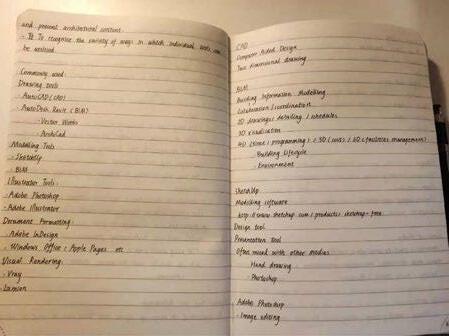 and present architectural content.
- To recognise the variety of ways in which individual tools can
be utilised.
Commonly used:
Drawing tools
- AutoCAD (CAD)
- AutoDesk Revit (BIM)
- Vector Works
- ArchiCad
Modelling Tools
- SketchUp
- BIM
Illustrator Tools:
- Adobe Photoshop
- Adobe Illustrator
Document Formatting:
- Adobe InDesign
- Windows Office / Apple Pages etc
Visual Rendering:
- Vray
- Lumion
CAD
Computer Aided Design
Two dimensional drawing
BIM
Building Information Modelling
Collaboration / coordination
2D drawings / detailing / schedules
3D visualisation
4D (time / programming) / 5D (costs) / 6D (facilities management)
- Building Lifecycle
- Environment
SketchUp
Modelling software
http://www.sketchup.com/products/sketchup-free
Design tool
Presentation tool
Often mixed with other medias
- Hand drawing
- Photoshop
Adobe Photoshop
- Image editing